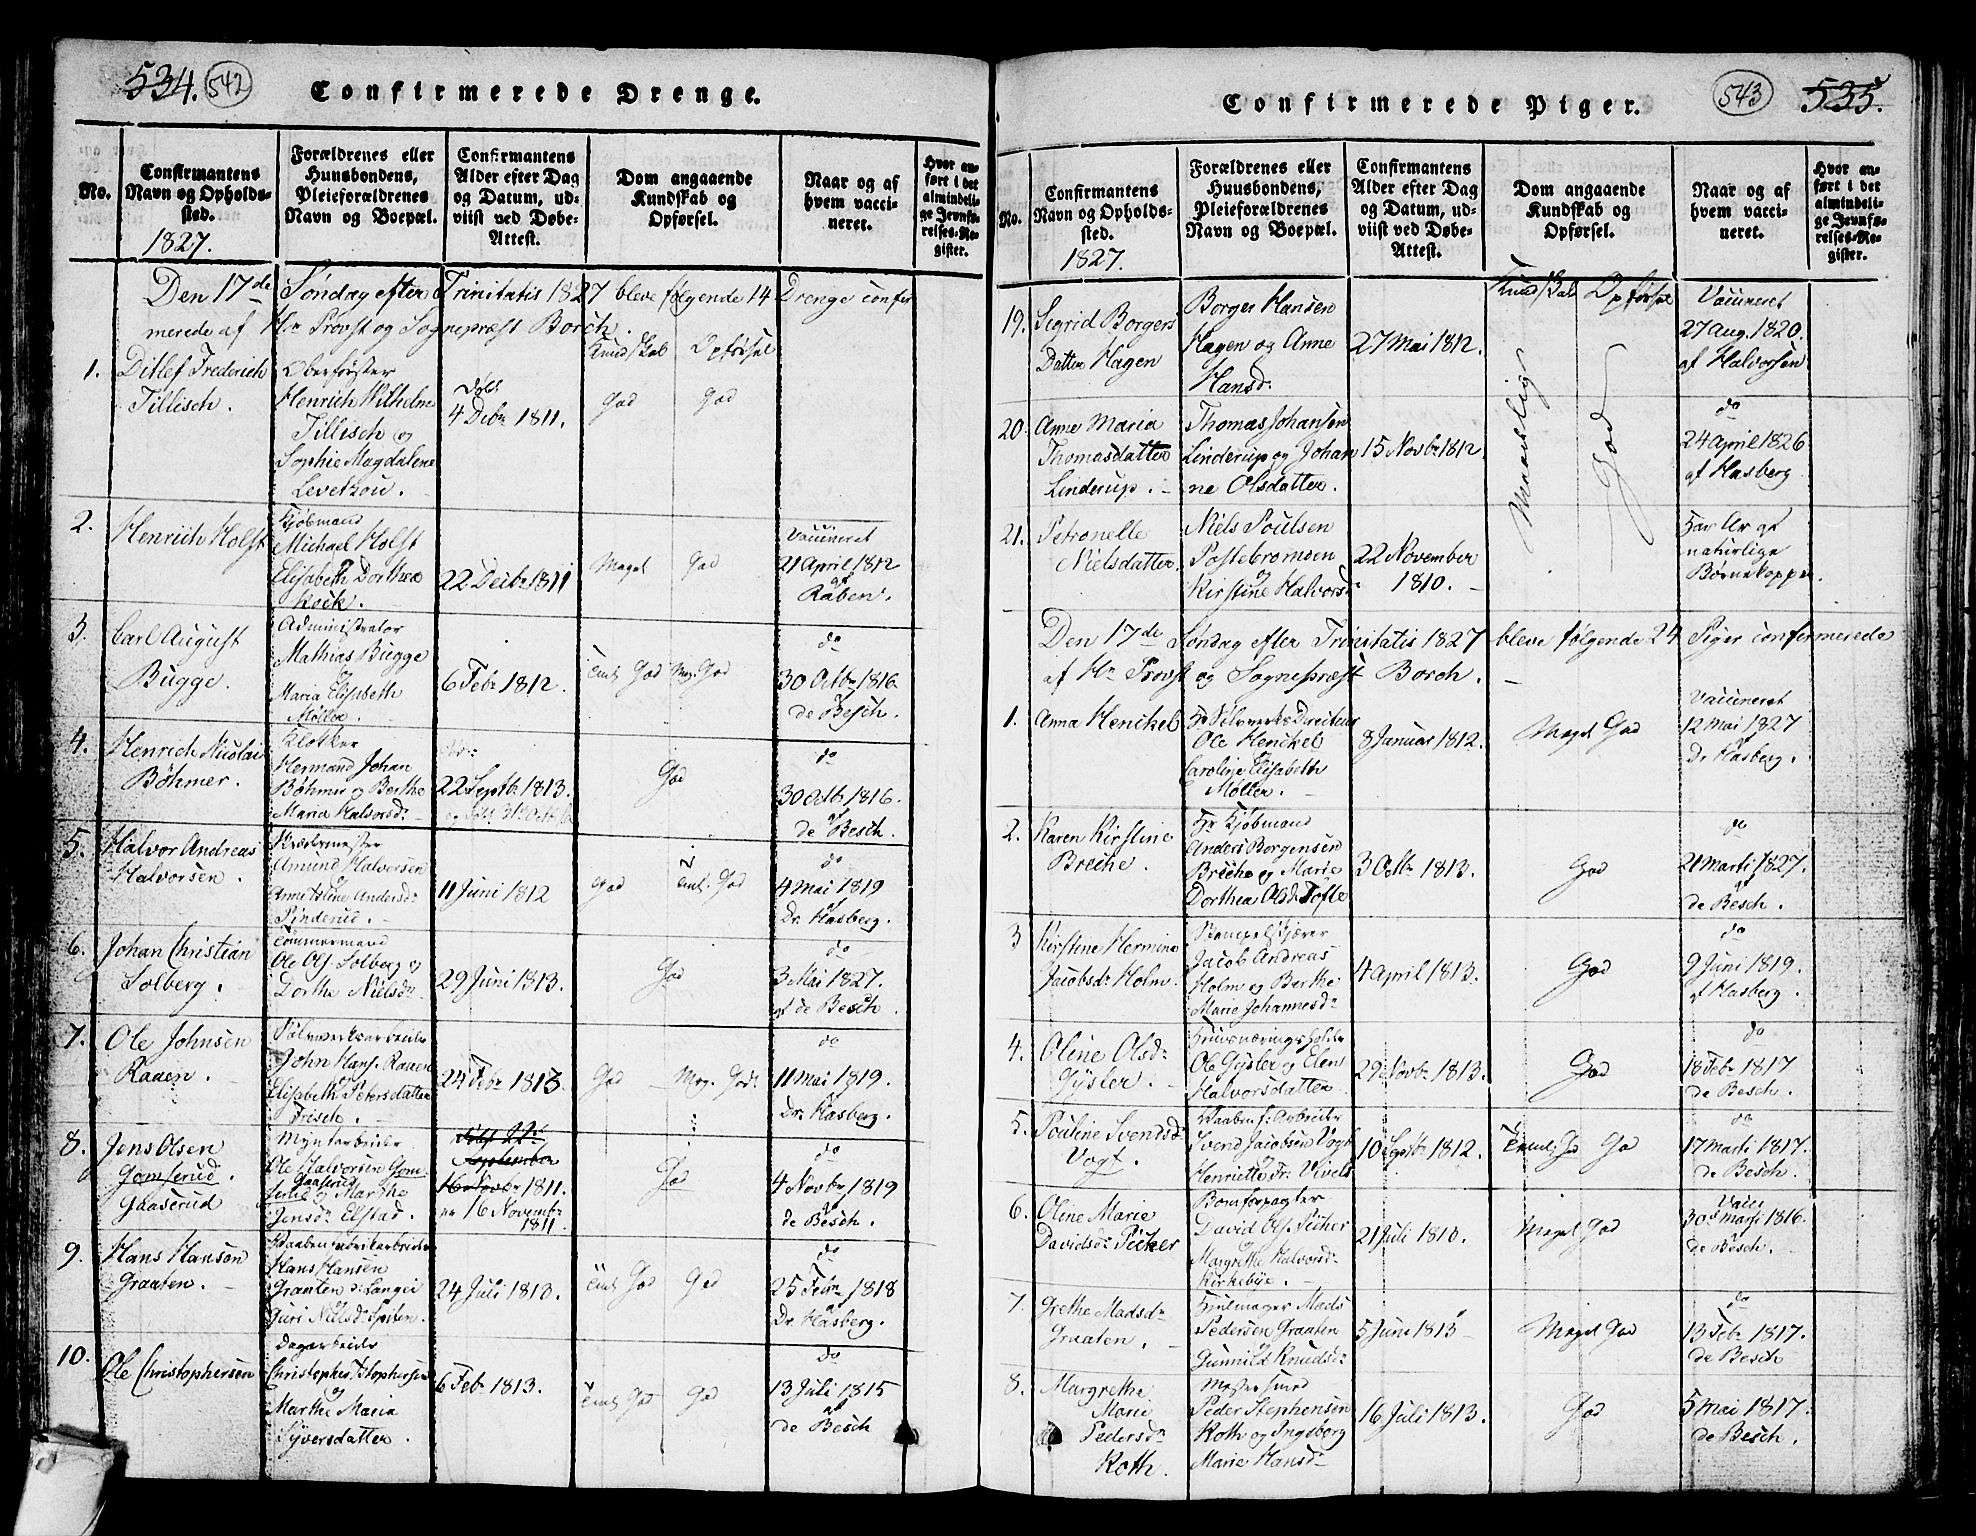 534. 542
Confirmerede Drenge.
No.
Confirmantens Navn og Opholdssted.
1827.
Forældrenes eller Huusbondens, Pleieforældrenes Navn og Boepæl.
Confirmantens Alder efter Dag og Datum, udviist ved Døbe-Attest.
Dom angaaende Kundskab og Opførsel.
Naar og af hvem vaccineret.
Hvor anført i det almindelige Jevnførelses-Register.
Den 17de Søndag efter Trinitatis 1827 bleve følgende 14 Drenge confirmerede af Hr Provst og Sognepræst Borch.
Kundskab Opførsel
1. Ditlef Frederich Tillisch.
Oberførster Henrich Wilhelm Tillisch og Sophie Magdalene Levetzou.
4 Debr 1811.
God God
2. Henrich Holst
Kjøbmand Michael Holst Elisabeth Dorthea Kock.
22 Decbr 1811
Meget God
Vaccineret 21 April 1812 af Raben.
3. Carl August Bugge.
Administrator Mathias Bugge Maria Elisbeth Møller.
6 Febr 1812.
Teml God Meg. God
do 30 Octbr 1816 af de Besch.
4. Henrich Nicolai Böhmer.
Klokker Hermand Johan Böhmer og Berthe Maria Halvorsdr
22 Septbr 1813.
God
do 30 Octbr 1816. af de Besch.
5. Halvor Andreas Halvorsen.
Amund Halvorsen Anne Stine Andersdr Pinderud.
11 Juni 1812
God Teml. God
do 4 Mai 1819 af Dr. Hasberg.
6. Johan Christian Solberg.
Tømmermand Ole Ols. Solberg og Dorthe Nielsdr
29 Juni 1813.
God
do 3 Mai 1827. af de Besch.
7. Ole Johnsen Raaen.
Sølvverksarbeider John Hans. Raaen og Elisabeth Petersdatter Frisch.
24 Febr 1813.
God Meg. Godt
do 11 Mai 1819. Dr. Hasberg.
8. Jens Olsen Gomserud. Gaaserud
Myntarbeider Ole Halvorsen Gomserud Gaaserud og Marthe Jensdr Elstad.
født 22de September 16 Novbr 1811. er 16 Novembr 1811.
God
do 4 Novbr 1819 af de Besch.
9. Hans Hansen Graaten.
Vaabenfabrikarbeider Hans Hansen Graaten d: Langei Guri Nielsdr Spiten.
24 Juli 1813.
Teml God God
do 25 Febr 1818 af Dr. Hasberg.
10. Ole Christophersen
Dagarbeider Christopher Stophersen og Marthe Maria Syversdatter.
6 Febr 1813.
Teml God God
do 13 Juli 1815 af de Besch
Confirmerede Piger.
543 535.
No.
Confirmantens Navn og Opholdssted.
1827.
Forældrenes eller Huusbondens, Pleieforældrenes Navn og Boepæl.
Confirmantens Alder efter Dag og Datum, udviist ved Døbe-Attest.
Dom angaaende Kundskab og Opførsel.
Naar og af hvem vaccineret.
Hvor anført i det almindelige Jevnførelses-Register.
Kundskab Opførsel
19. Sigrid Borgers Datter Hagen
Borger Hansen Hagen og Anne Hansd:
27 Mai 1812.
Maadelig God
Vaccineret 27 Aug. 1820. af Halvorsen
20. Anne Maria Thomasdatter Linderup.
Thomas Johansen Linderup og Johanne Olsdatter.
15 Novbr 1812
do 24 April 1826 af Hasberg
21. Petronelle Nielsdatter.
Niels Poulsen Postebromoen og Kirstine Halvorsdr
22 November 1810.
Har Ar af naturlige Børnekopper.
Den 17de Søndag efter Trinitatis 1827 bleve følgende 24 Piger confermerede af Hr Provst og Sognepræst Borch.
1. Anna Henckel
Hr Sølvverks Directeur Ole Henckel og Caroline Elisabeth Møller.
8 Januar 1812.
Meget God
Vaccineret 12 Mai 1827 Dr Hasberg.
2. Karen Kirstine Breche.
Hr Kjøbmand Anders Borgensen Breche og Marie Dorthea Olsdr Tofte
3 Octbr 1813.
God
do 21 Marti 1827. af de Besch.
3 Kirstine Hermine Jacobsdr Holm.
Stempelskjærer Jacob Andreas Holm og Berthe Marie Johannesdr
4 April 1813.
God
do 9 Juni 1819. af Hasberg.
4. Oline Olsdr Gysler.
Ole Gysler og Elen Halvorsdatter
29 Novbr 1813.
God
do 18 Febr 1817 de Besch.
5. Pouline Svendsdr Vogt.
Vaabenf: Arbeider Svend Jacobsen Vogt og Henriette Fr: Vivels
10 Septbr 1812.
Teml: God God
do 17 Marti 1817. de Besch.
6. Oline Marie Davidsdr Picher
Bomforpagter David Ols. Picher og Margrethe Halvorsdr Kirkebye.
21 Juli 1813.
Meget God
Vacc 30 Marti 1816. de Besch.
7. Grethe Madsdr Graaten.
Hjulmager Mads Pedersen Graaten og Gunnild Knudsdr
5 Juni 1813
Meget God
do 13 Febr 1817. de Besch
8. Margrethe Marie Pedersdr Roth.
Mestersmed Peder Stephensen Roth og Ingeborg Marie Hansdr
16 Juli 1813.
God
5 Mai 1817. de Besch.